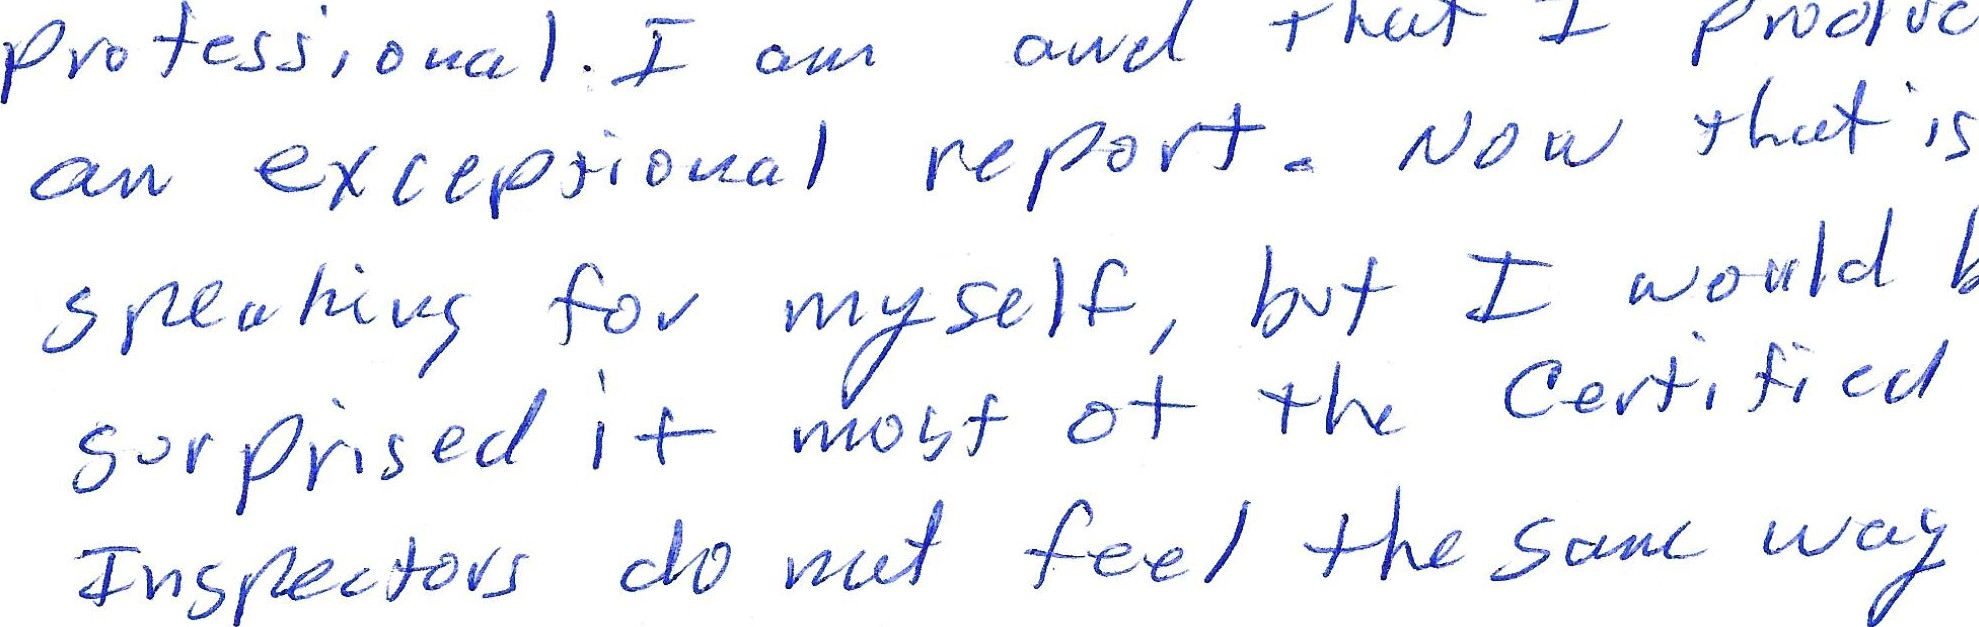 professional. I am and that I produc
an exceptional report. Now that is
speaking for myself, but I would b
surprised if most of the Certified
Inspectors do not feel the same way